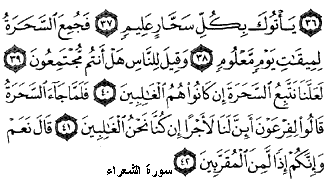 ﴿٣٦﴾ يَأْتُوكَ بِكُلِّ سَحَّارٍ عَلِيمٍ ﴿٣٧﴾ فَجُمِعَ ٱلسَّحَرَةُ
لِمِيقَٰتِ يَوْمٍ مَّعْلُومٍ ﴿٣٨﴾ وَقِيلَ لِلنَّاسِ هَلْ أَنتُم مُّجْتَمِعُونَ ﴿٣٩﴾
لَعَلَّنَا نَتَّبِعُ ٱلسَّحَرَةَ إِن كَانُوا۟ هُمُ ٱلْغَٰلِبِينَ ﴿٤٠﴾ فَلَمَّا جَآءَ ٱلسَّحَرَةُ
قَالُوا۟ لِفِرْعَوْنَ أَئِنَّ لَنَا لَأَجْرًا إِن كُنَّا نَحْنُ ٱلْغَٰلِبِينَ ﴿٤١﴾ قَالَ نَعَمْ
وَإِنَّكُمْ إِذًا لَّمِنَ ٱلْمُقَرَّبِينَ ﴿٤٢﴾
سورة الشعراء